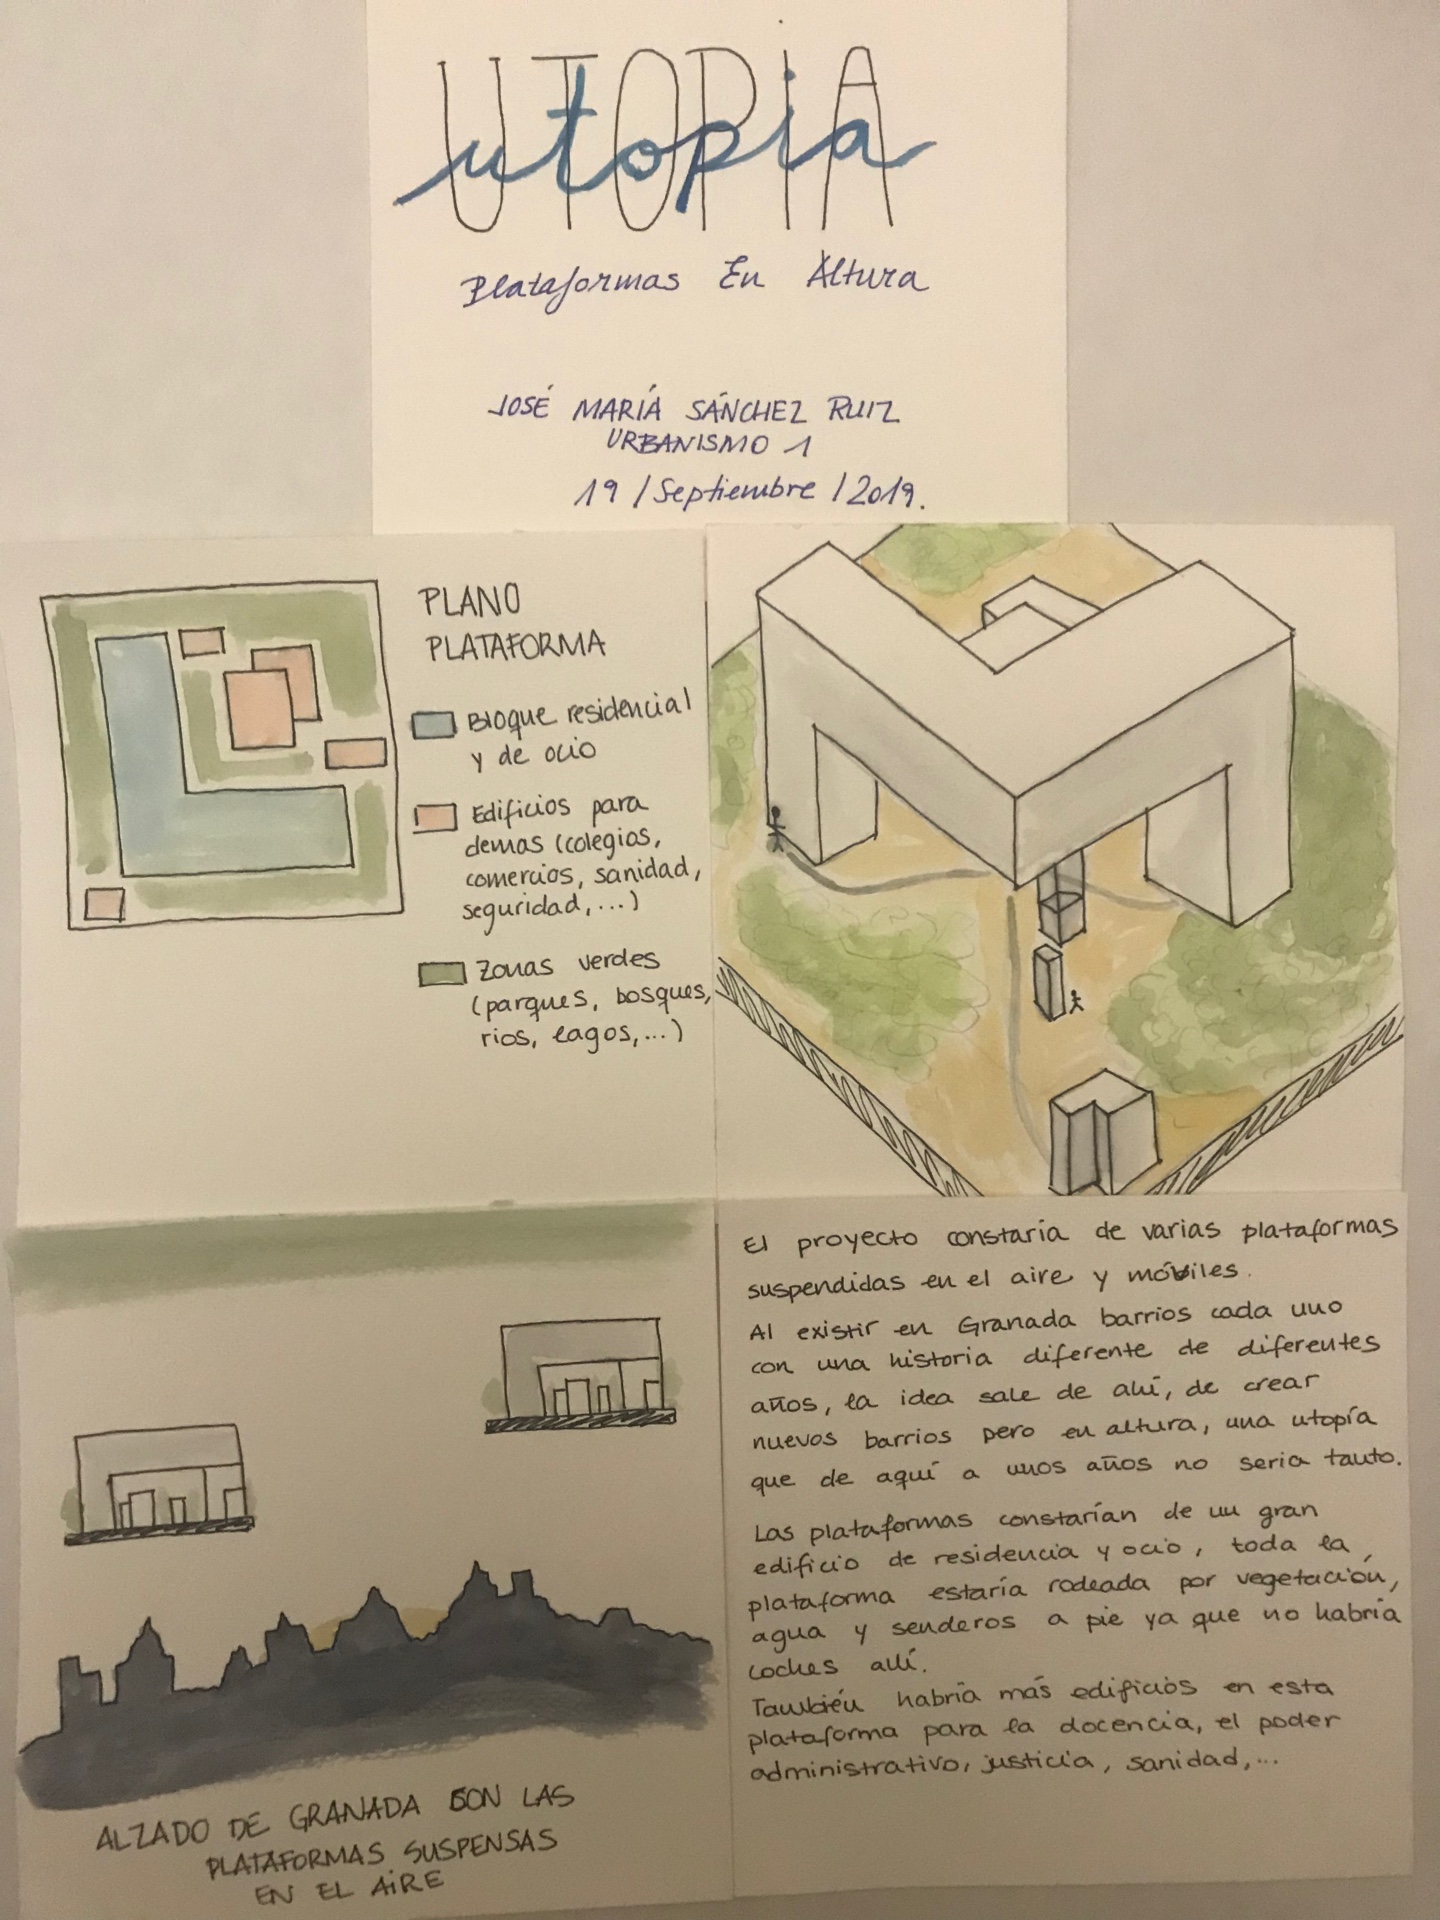 UTOPIA
utopia
Plataformas En Altura
JOSÉ MARÍA SÁNCHEZ RUIZ
URBANISMO 1
19/Septiembre/2019.
PLANO
PLATAFORMA
Bloque residencial
y de ocio
Edificios para
demas (colegios,
comercios, sanidad,
seguridad,...)
Zonas verdes
(parques, bosques,
rios, lagos,...)
El proyecto constaría de varias plataformas
suspendidas en el aire y móviles.
Al existir en Granada barrios cada uno
con una historia diferente de diferentes
años, la idea sale de ahí, de crear
nuevos barrios pero en altura, una utopía
que de aquí a unos años no seria tanto.
Las plataformas constarían de un gran
edificio de residencia y ocio, toda la
plataforma estaría rodeada por vegetación,
agua y senderos a pie ya que no habría
coches allí.
También habría más edificios en esta
plataforma para la docencia, el poder
administrativo, justicia, sanidad,...
ALZADO DE GRANADA CON LAS
PLATAFORMAS SUSPENSAS
EN EL AIRE